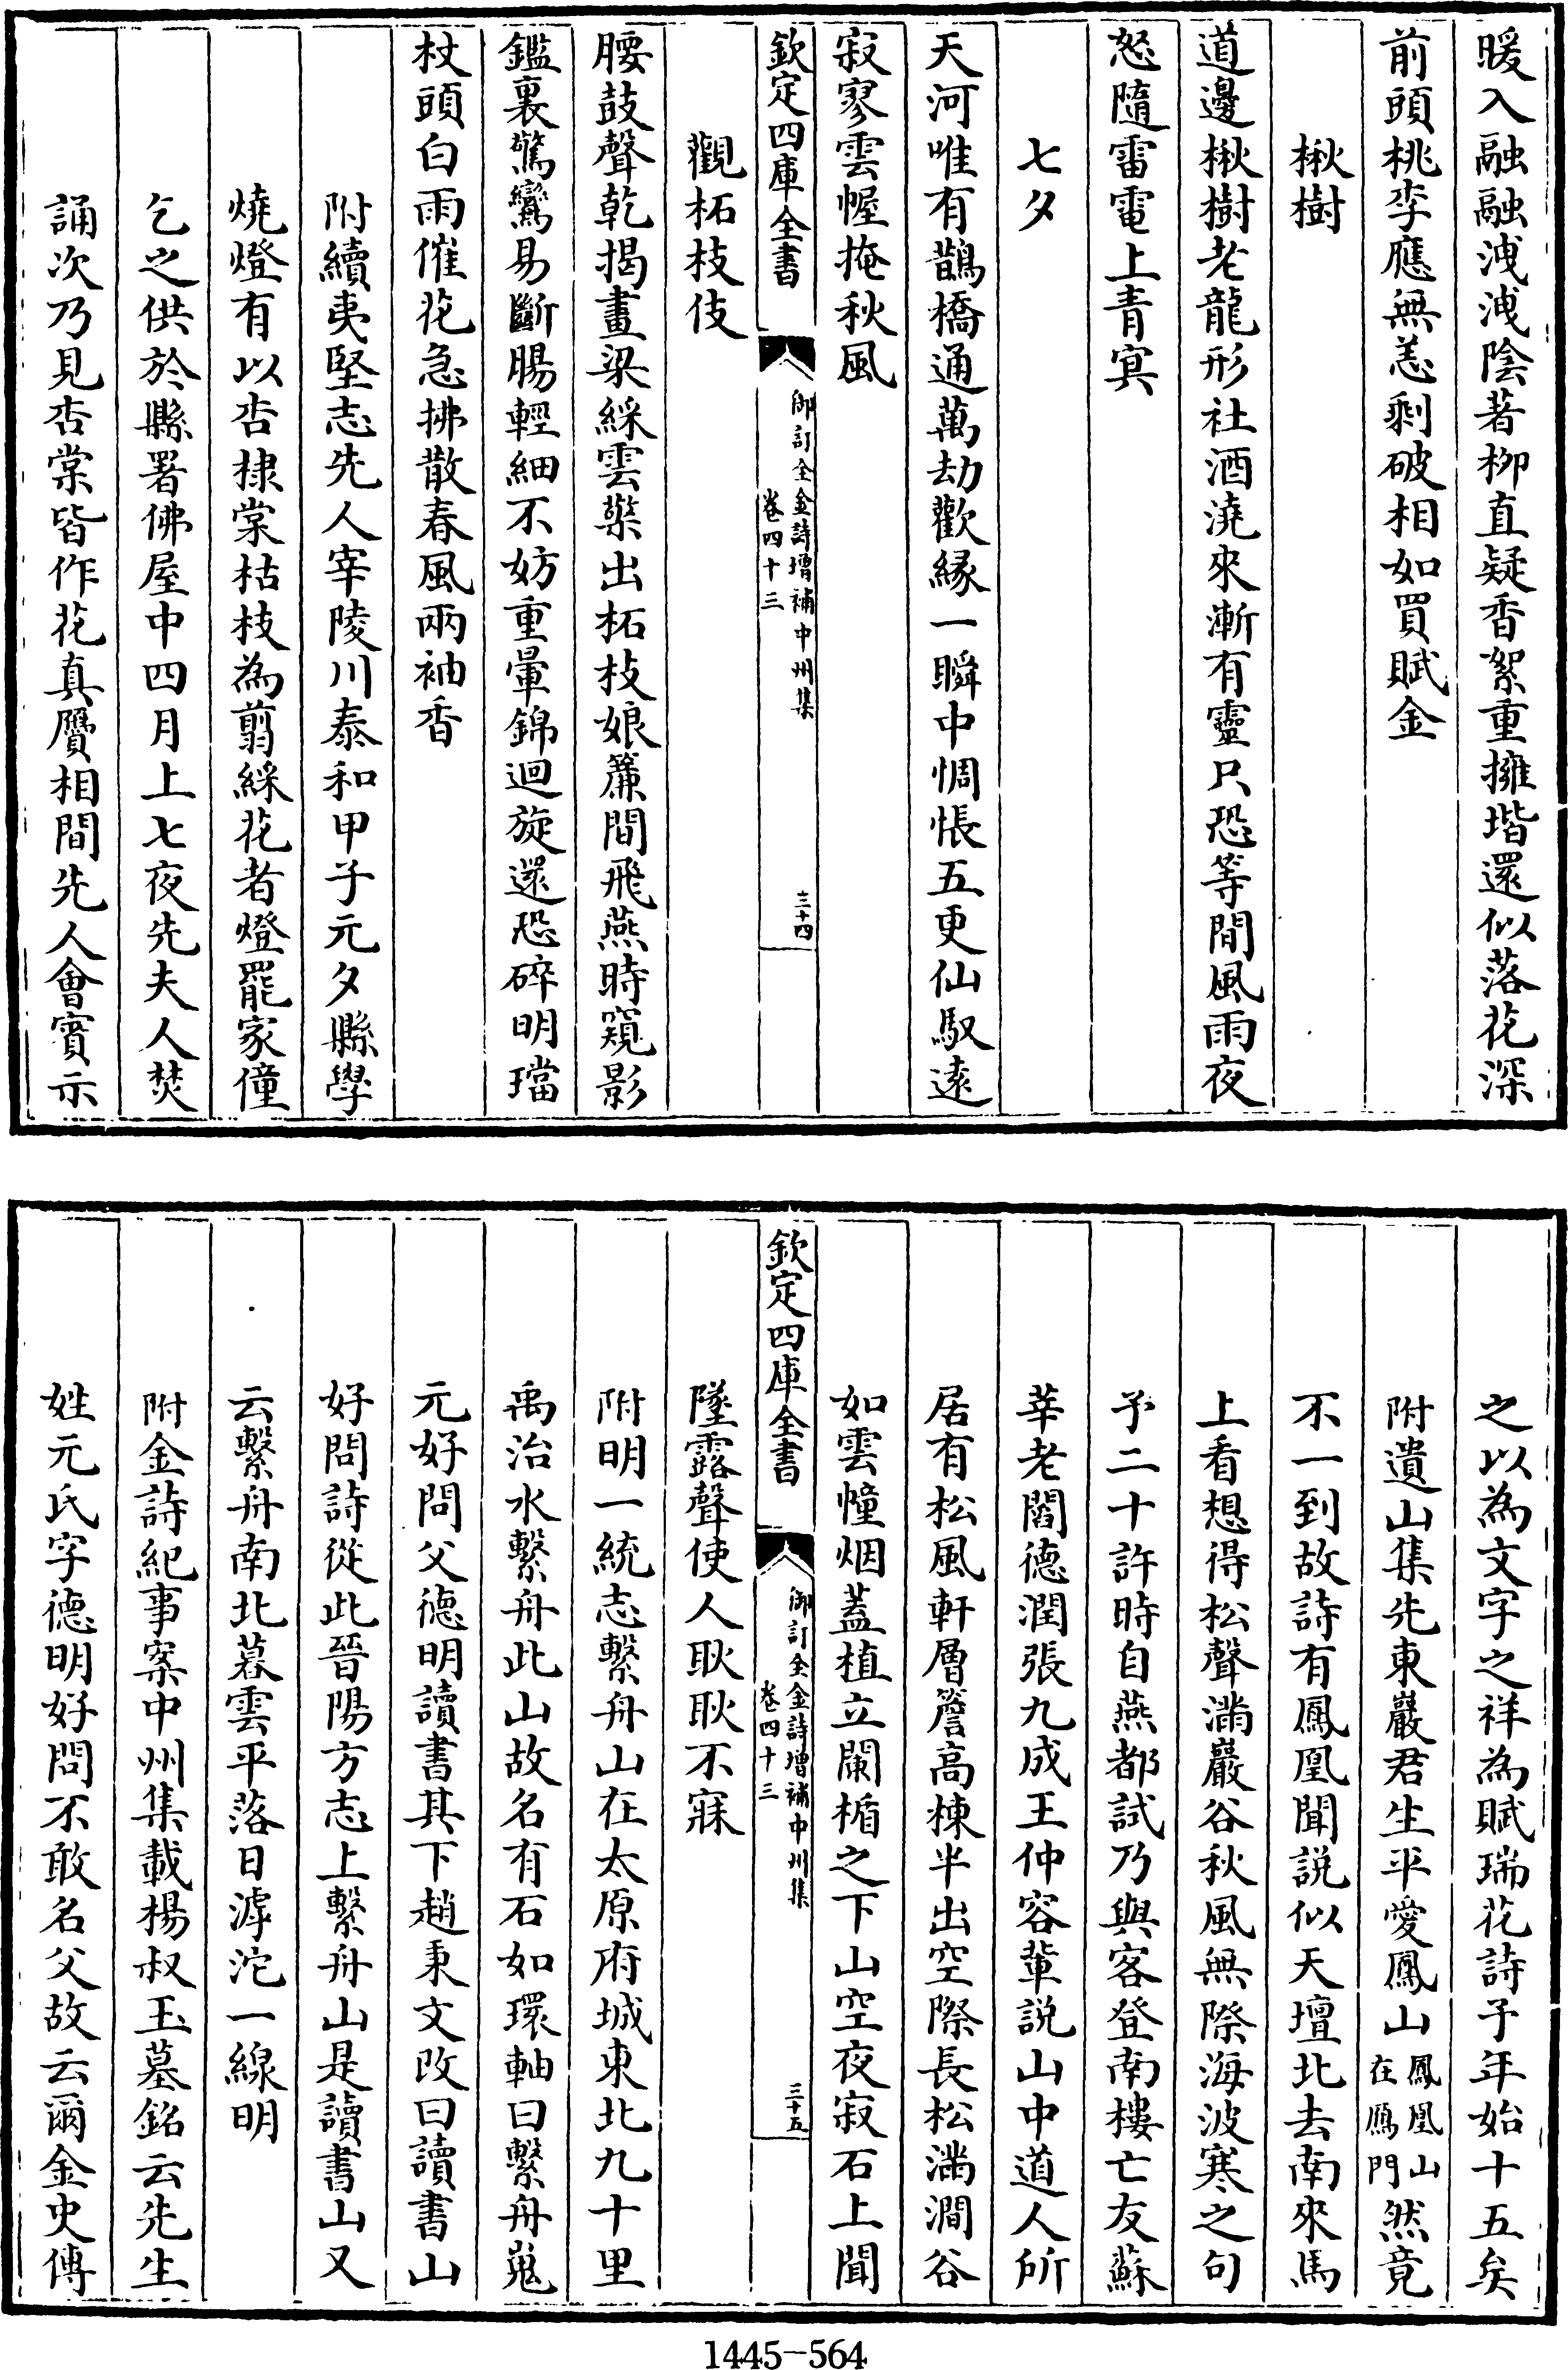 暖入融融洩洩陰著柳直疑香絮重擁堦還似落花深
前頭桃李應無恙剩破相如買賦金
楸樹
道邊楸樹老龍形社酒澆來漸有靈只恐等閒風雨夜
怒隨雷電上青冥
七夕
天河唯有鵲橋通萬劫歡緣一瞬中惆悵五更仙馭遠
寂寥雲幄掩秋風
欽定四庫全書
御訂全金詩增補中州集
卷四十三
三十四
觀柘枝伎
腰鼓聲乾揭畫梁綵雲擎出柘枝娘簾間飛燕時窺影
鑑裏驚鸞易斷腸輕細不妨重暈錦迴旋還恐碎明璫
杖頭白雨催花急拂散春風兩袖香
附續夷堅志先人宰陵川泰和甲子元夕縣學
燒燈有以杏棣棠枯枝為翦綵花者燈罷家僮
乞之供於縣署佛屋中四月上七夜先夫人焚
誦次乃見杏棠皆作花真贋相間先人會賓示
之以為文字之祥為賦瑞花詩予年始十五矣
附遺山集先東巖君生平愛鳳山鳳凰山在鴈門然竟
不一到故詩有鳳凰聞説似天壇北去南來馬
上看想得松聲滿巖谷秋風無際海波寒之句
予二十許時自燕都試乃與客登南樓亡友蘇
莘老閻德潤張九成王仲容輩説山中道人所
居有松風軒層簷高棟半出空際長松滿澗谷
如雲幢烟蓋植立闌楯之下山空夜寂石上聞
欽定四庫全書
御訂全金詩增補中州集
卷四十三
三十五
墜露聲使人耿耿不寐
附明一統志繫舟山在太原府城東北九十里
禹治水繫舟此山故名有石如環軸曰繫舟嵬
元好問父德明讀書其下趙秉文改曰讀書山
好問詩從此晉陽方志上繫舟山是讀書山又
云繫舟南北暮雲平落日滹沱一線明
附金詩紀事案中州集載楊叔玉墓銘云先生
姓元氏字德明好問不敢名父故云爾金史傳
1445-564